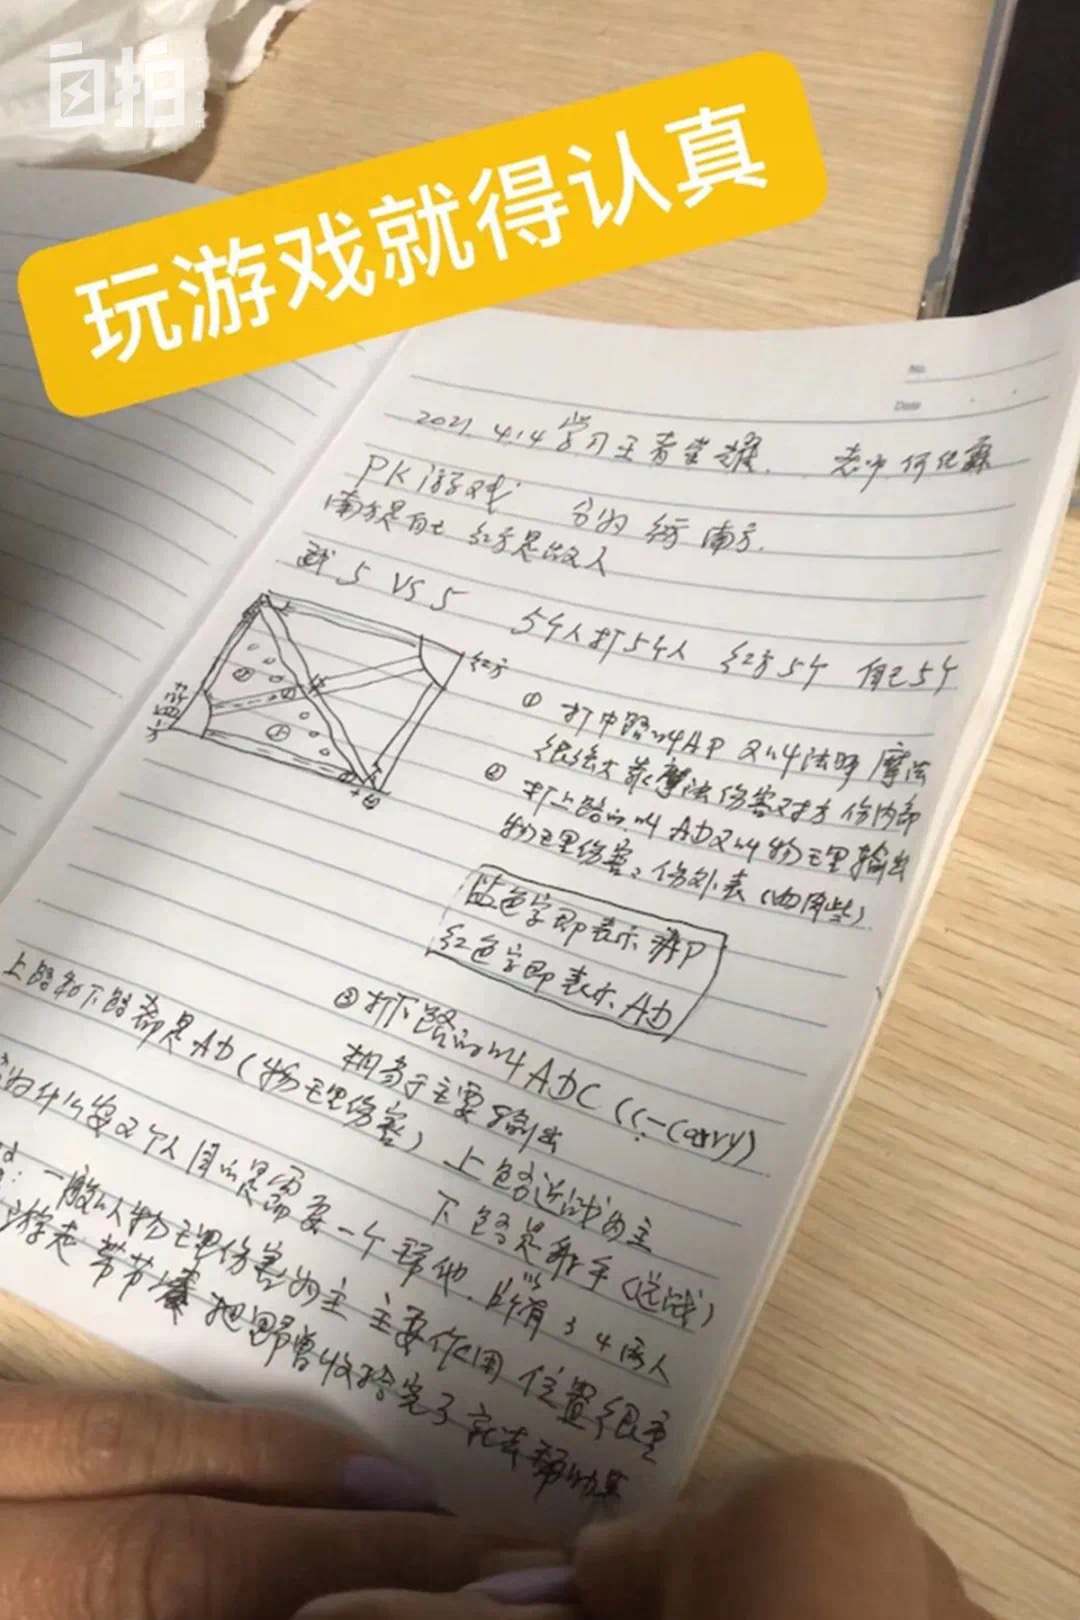 自拍
玩游戏就得认真
No.
Date
2021.4.14 学习王者荣耀. 老师 何
PK游戏 分为 红方
方是自己 红方是敌人
5 VS 5 5个人打5个人 红方5个 自己5个
红方
① 打中路叫AP 又叫法师 魔法
很强大 靠魔法伤害对方 伤内部
② 打上路的叫AD又叫物理输出
物理伤害, 伤外表(如肉些)
蓝色字即表示AP
红色字即表示AD
③打下路的叫ADC (C-Carry)
相当于主要输出
上路和下路都是AD(物理伤害) 上路近战为主
下路是射手(远战)
为什么安2个人 目的是需要一个帮他. 所以有3 4两人
一般以物理伤害为主 主要作用 位置很重
游走 带节奏 把野兽收拾完了就去帮助其